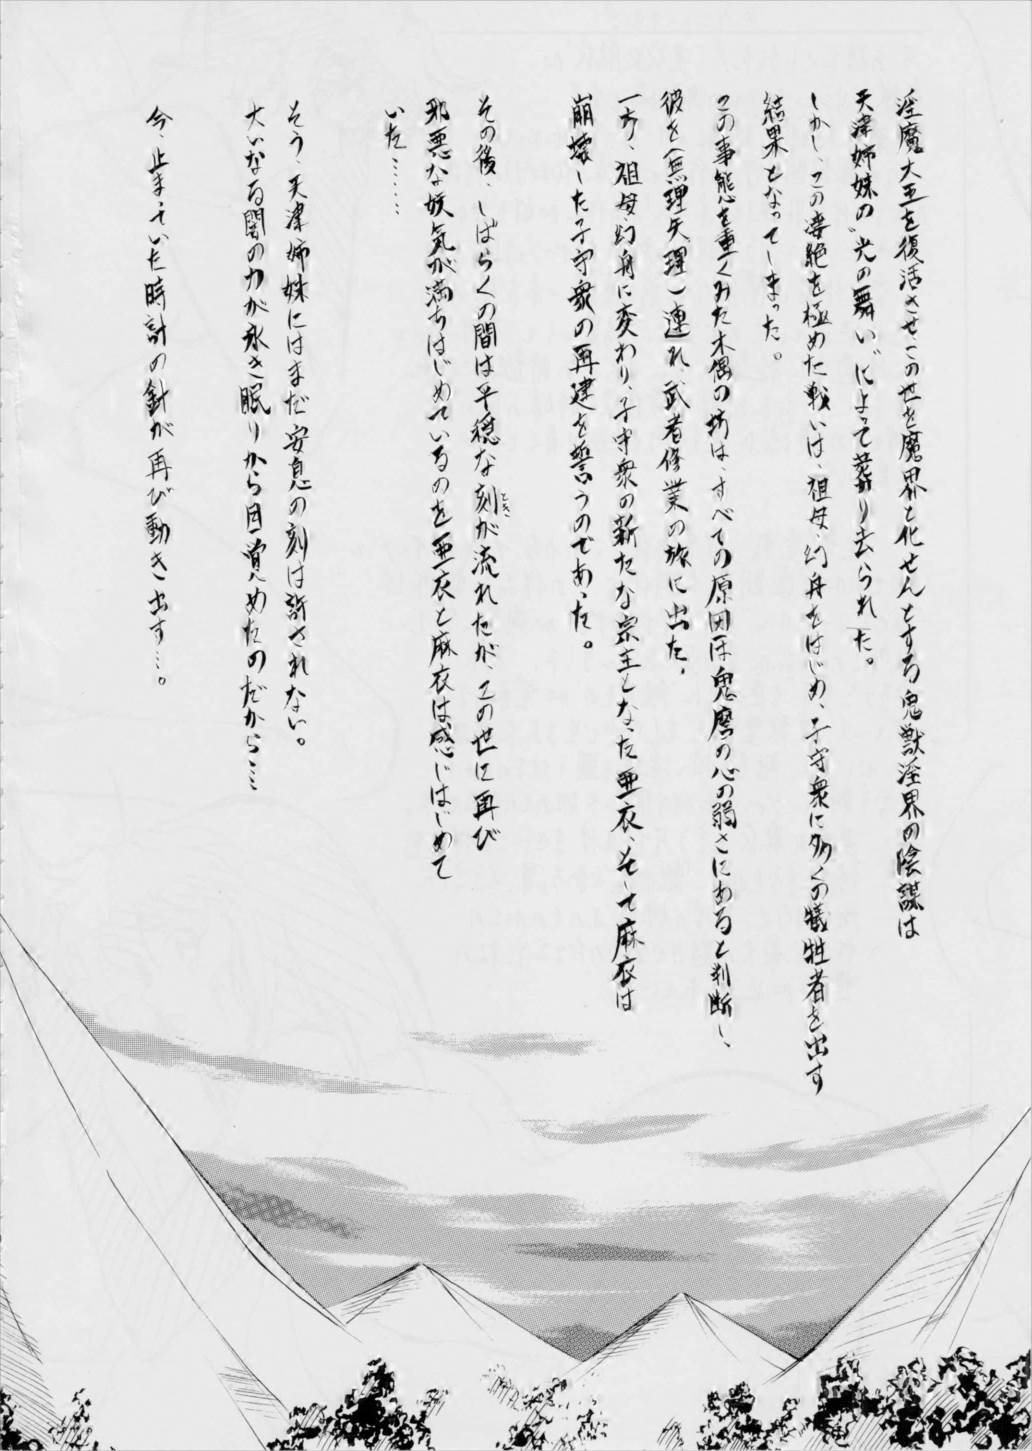 淫魔大王を復活させこの世を魔界と化せんとする鬼獣淫界の陰謀は
天津姉妹の〝光の舞い〟によって葬り去られた。
しかし、この凄絶を極めた戦いは、祖母・幻舟をはじめ、子守衆に多くの犠牲者を出す
結果となってしまった。
この事態を重くみた木偶の坊は、すべての原因は鬼麿の心の弱さにあると判断し、
彼を(無理矢理)連れ、武者修業の旅に出た。
一方、祖母・幻舟に変わり、子守衆の新たな宗主となった亜衣、そして麻衣は
崩壊した子守衆の再建を誓うのであった。
その後、しばらくの間は平穏な刻(とき)が流れたが、この世に再び
邪悪な妖気が満ちはじめているのを亜衣と麻衣は感じはじめて
いた……
そう、天津姉妹にはまだ安息の刻は許されない。
大いなる闇の力が永き眠りから目覚めたのだから…
今 止まっていた時計の針が再び動き出す…。